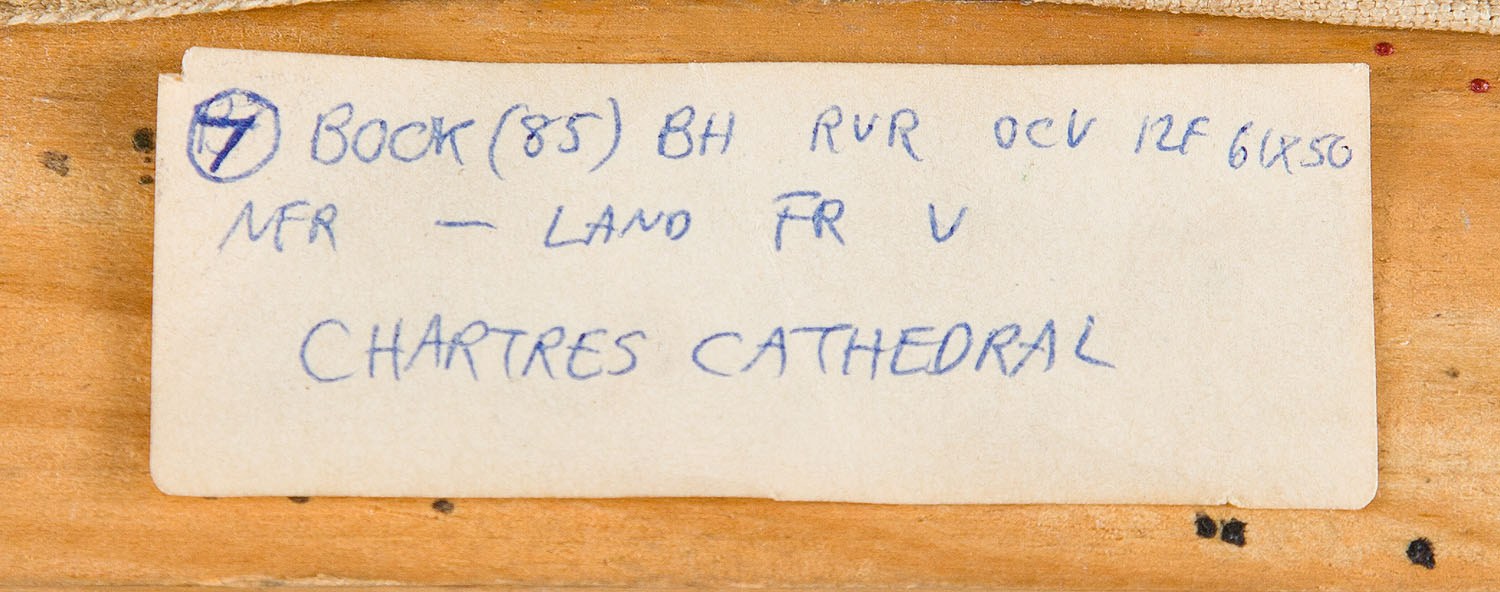 7 BOCK (85) BH RVR OCV 12F 61X50
NFR — LAND FR V
CHARTRES CATHEDRAL